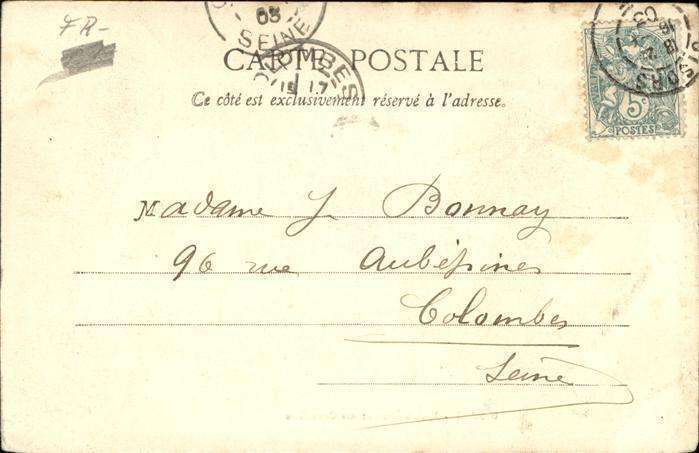 FR-
03
SEINE
CARTE POSTALE
COLOMBES
Ce côté est exclusivement réservé à l'adresse.
5c
POSTES
Madame J Bonnay
96 rue Aubépines
Colombes
Seine